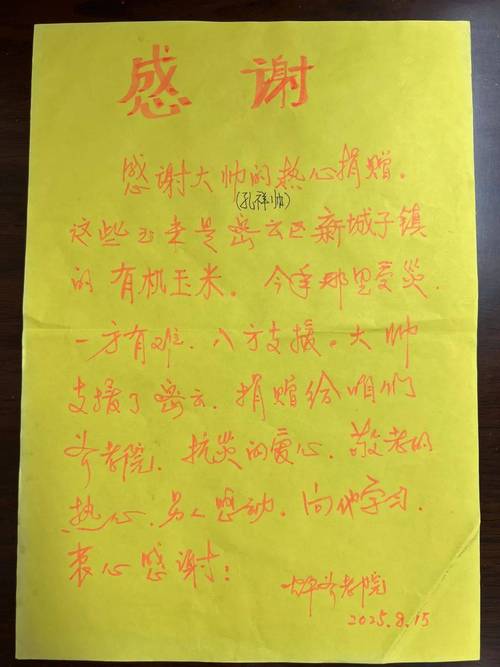 感谢
感谢大帅的热心捐赠。
(孔祥帅)
这些玉米是密云区新城子镇
的有机玉米。今年那里受灾.
一方有难.八方支援。大帅
支援了密云.捐赠给咱们
养老院.抗灾的爱心.敬老的
热心.另人感动.向他学习.
衷心感谢!
养老院
2025.8.15